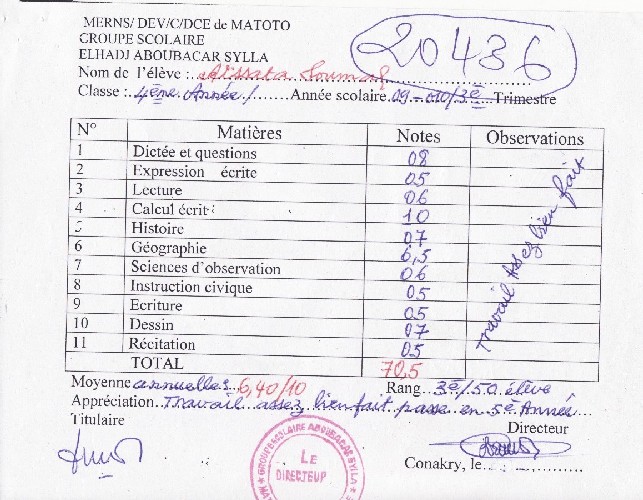 MERNS/ DEV/C/DCE de MATOTO
GROUPE SCOLAIRE
ELHADJ ABOUBACAR SYLLA
20436
Nom de l'élève :. Aïssata Soumah
Classe :. 4ème Année / Année scolaire 09-010/3è Trimestre
N° Matières Notes Observations
1 Dictée et questions 08
2 Expression écrite 05
3 Lecture 06
4 Calcul écrit 10
5 Histoire 07
6 Géographie 6,5
7 Sciences d'observation 06
8 Instruction civique 05
9 Ecriture 05
10 Dessin 07
11 Récitation 05
Travail assez bien fait
TOTAL 70,5
Moyenne annuelles 6,40/10 Rang 3è/50 élève
Appréciation Travail assez bien fait passe en 5è Année
Titulaire Directeur
GROUPE SCOLAIRE ABOUBACAR SYLLA
LE
DIRECTEUR
Conakry, le